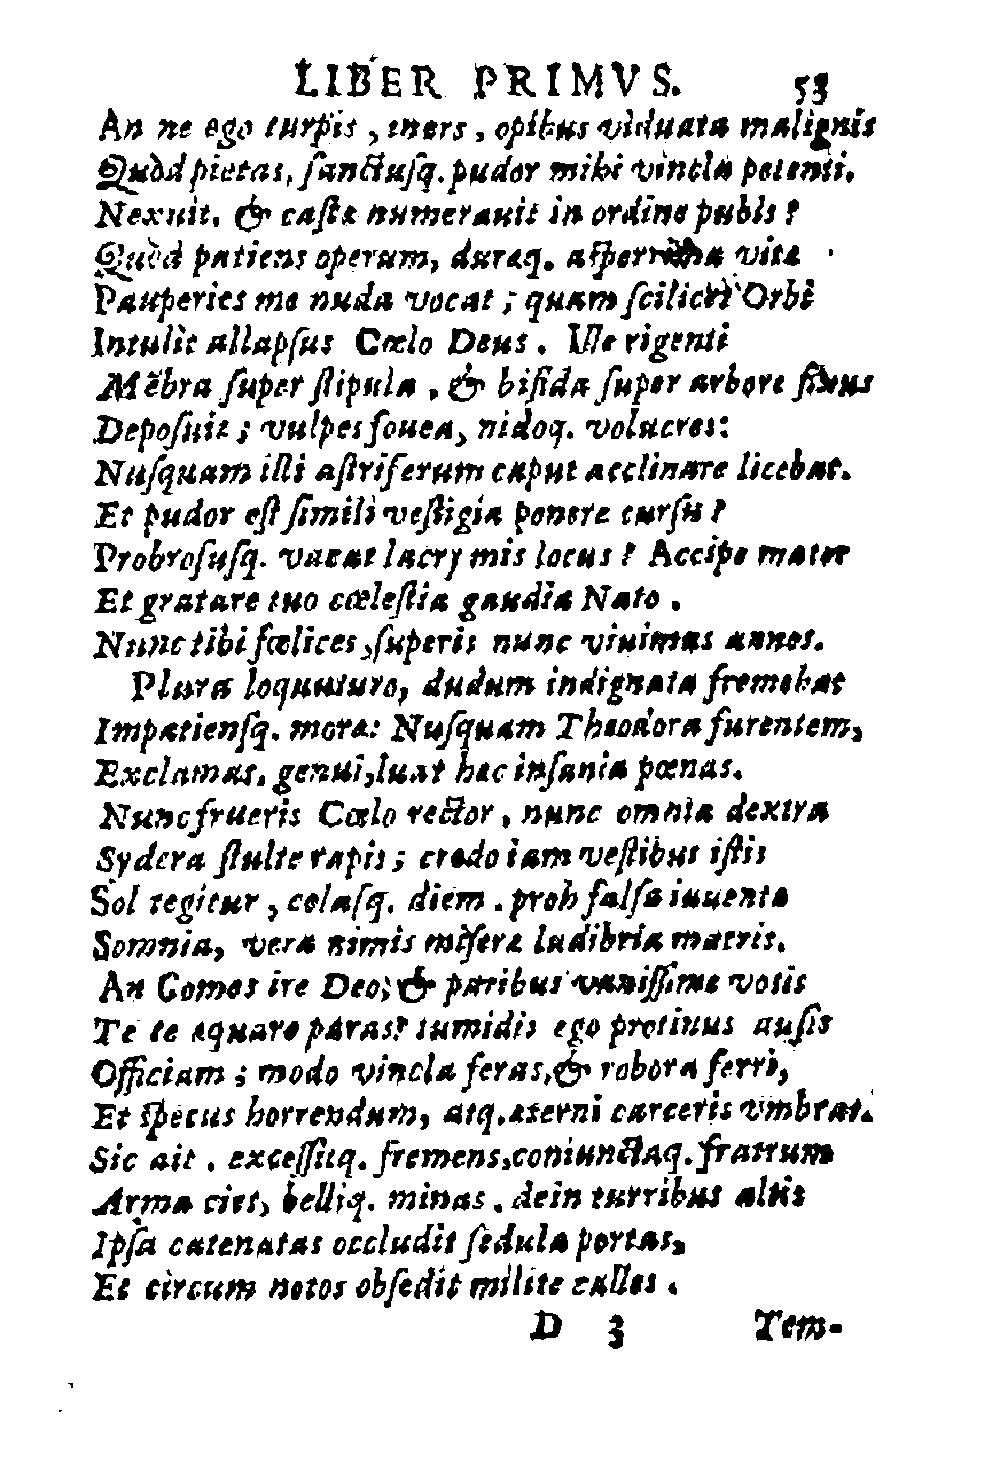 LIBER PRIMVS. 53
An ne ego turpis, iners, opibus viduata malignis
Quòd pietas, ſanctuſq. pudor mihi vincla petenti.
Nexuit, & caſta numerauit in ordine pubis?
Quòd patiens operum, duraq. aſperrima vita
Pauperies me nuda vocat; quam ſcilicet Orbi
Intulit allapſus Cœlo Deus. Ille rigenti
Mẽbra ſuper ſtipula, & bifida ſuper arbore fixus
Depoſuit; vulpes fouea, nidoq. volucres:
Nuſquam illi aſtriferum caput acclinare licebat.
Et pudor eſt ſimili veſtigia ponere curſu?
Probroſuſq. vacat lacrymis locus? Accipe mater
Et gratare tuo cœleſtia gaudia Nato.
Nunc tibi fœlices, ſuperis nunc viuimus annos.
Plura loquuturo, dudum indignata fremebat
Impatienſq. mora: Nuſquam Theodora furentem,
Exclamas, genui, luat hæc inſania pœnas.
Nunc frueris Cœlo rector, nunc omnia dextra
Sydera ſtulte rapis; credo iam veſtibus iſtis
Sol tegitur, celaſq. diem. proh falſa iuuenta
Somnia, vera nimis miſeræ ludibria matris.
An Comes ire Deo, & paribus vaniſſime votis
Te te æquare paras? tumidis ego protinus auſis
Officiam; modo vincla feras, & robora ferri,
Et ſpecus horrendum, atq. æterni carceris vmbras.
Sic ait. exceſſitq. fremens, coniunctaq. fratrum
Arma ciet, belliq. minas. dein turribus altis
Ipſa catenatas occludit ſedula portas,
Et circum notos obſedit milite calles.
D 3 Tem-